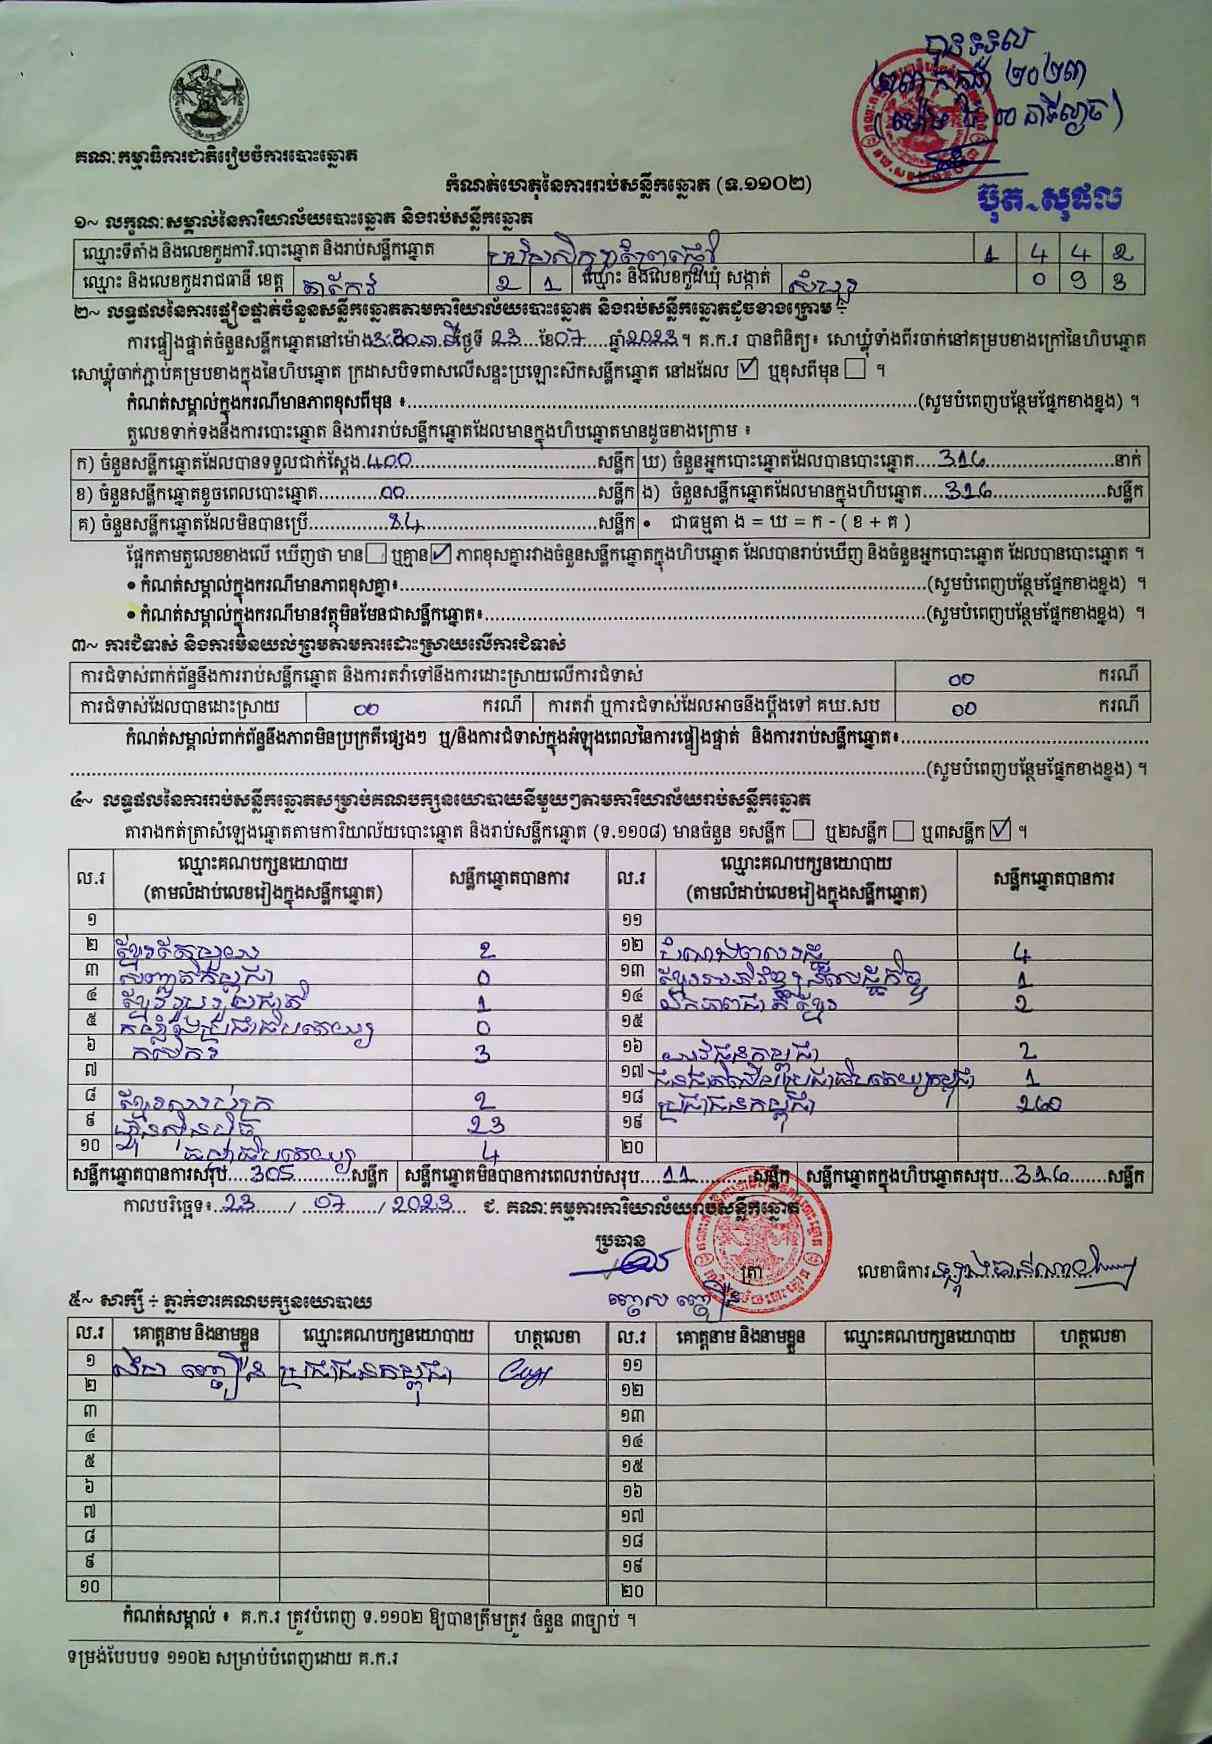 បានទទួល
២០២៣
គណៈកម្មាធិការជាតិរៀបចំការបោះឆ្នោត
កំណត់ហេតុនៃការរាប់សន្លឹកឆ្នោត (ទ.១១០២)
ប៊ុត សុផល
១~ លក្ខណៈសម្គាល់នៃការិយាល័យបោះឆ្នោត និងរាប់សន្លឹកឆ្នោត
ឈ្មោះទីតាំង និងលេខកូដការិ.បោះឆ្នោត និងរាប់សន្លឹកឆ្នោត 1 4 4 2
ឈ្មោះ និងលេខកូដរាជធានី ខេត្ត តាកែវ 2 1 ឈ្មោះ និងលេខកូដឃុំ សង្កាត់ សំឡូង 0 9 3
២~ លទ្ធផលនៃការផ្ទៀងផ្ទាត់ចំនួនសន្លឹកឆ្នោតតាមការិយាល័យបោះឆ្នោត និងរាប់សន្លឹកឆ្នោតដូចខាងក្រោម ÷
ការផ្ទៀងផ្ទាត់ចំនួនសន្លឹកឆ្នោតនៅម៉ោង 3:30 នាទី ថ្ងៃទី 23 ខែ 07 ឆ្នាំ 2023 ។ គ.ក.រ បានពិនិត្យ៖ សោឃ្លុំទាំងពីរចាក់នៅគម្របខាងក្រៅនៃហិបឆ្នោត
សោឃ្លុំចាក់ភ្ជាប់គម្របខាងក្នុងនៃហិបឆ្នោត ក្រដាសបិទពាសលើសន្ទះប្រឡោះស៊កសន្លឹកឆ្នោត នៅដដែល ☑ ឬខុសពីមុន ☐ ។
កំណត់សម្គាល់ក្នុងករណីមានភាពខុសពីមុន ៖ (សូមបំពេញបន្ថែមផ្នែកខាងខ្នង) ។
តួលេខទាក់ទងនឹងការបោះឆ្នោត និងការរាប់សន្លឹកឆ្នោតដែលមានក្នុងហិបឆ្នោតមានដូចខាងក្រោម ៖
ក) ចំនួនសន្លឹកឆ្នោតដែលបានទទួលជាក់ស្តែង 400 សន្លឹក ឃ) ចំនួនអ្នកបោះឆ្នោតដែលបានបោះឆ្នោត 316 នាក់
ខ) ចំនួនសន្លឹកឆ្នោតខូចពេលបោះឆ្នោត 00 សន្លឹក ង) ចំនួនសន្លឹកឆ្នោតដែលមានក្នុងហិបឆ្នោត 316 សន្លឹក
គ) ចំនួនសន្លឹកឆ្នោតដែលមិនបានប្រើ 84 សន្លឹក • ជាធម្មតា ង = ឃ = ក - ( ខ + គ )
ផ្អែកតាមតួលេខខាងលើ ឃើញថា មាន ☐ ឬគ្មាន ☑ ភាពខុសគ្នារវាងចំនួនសន្លឹកឆ្នោតក្នុងហិបឆ្នោត ដែលបានរាប់ឃើញ និងចំនួនអ្នកបោះឆ្នោត ដែលបានបោះឆ្នោត ។
• កំណត់សម្គាល់ក្នុងករណីមានភាពខុសគ្នា៖ (សូមបំពេញបន្ថែមផ្នែកខាងខ្នង) ។
• កំណត់សម្គាល់ក្នុងករណីមានវត្ថុមិនមែនជាសន្លឹកឆ្នោត៖ (សូមបំពេញបន្ថែមផ្នែកខាងខ្នង) ។
៣~ ការជំទាស់ និងការមិនយល់ព្រមតាមការដោះស្រាយលើការជំទាស់
ការជំទាស់ពាក់ព័ន្ធនឹងការរាប់សន្លឹកឆ្នោត និងការតវ៉ាទៅនឹងការដោះស្រាយលើការជំទាស់ 00 ករណី
ការជំទាស់ដែលបានដោះស្រាយ 00 ករណី ការតវ៉ា ឬការជំទាស់ដែលអាចនឹងប្តឹងទៅ គឃ.សប 00 ករណី
កំណត់សម្គាល់ពាក់ព័ន្ធនឹងភាពមិនប្រក្រតីផ្សេងៗ ឬ/និងការជំទាស់ក្នុងអំឡុងពេលនៃការផ្ទៀងផ្ទាត់ និងការរាប់សន្លឹកឆ្នោត៖
(សូមបំពេញបន្ថែមផ្នែកខាងខ្នង) ។
៤~ លទ្ធផលនៃការរាប់សន្លឹកឆ្នោតសម្រាប់គណបក្សនយោបាយនីមួយៗតាមការិយាល័យរាប់សន្លឹកឆ្នោត
តារាងកត់ត្រាសំឡេងឆ្នោតតាមការិយាល័យបោះឆ្នោត និងរាប់សន្លឹកឆ្នោត (ទ.១១០៨) មានចំនួន ១សន្លឹក ☐ ឬ២សន្លឹក ☐ ឬ៣សន្លឹក ☑ ។
ល.រ ឈ្មោះគណបក្សនយោបាយ (តាមលំដាប់លេខរៀងក្នុងសន្លឹកឆ្នោត) សន្លឹកឆ្នោតបានការ ល.រ ឈ្មោះគណបក្សនយោបាយ (តាមលំដាប់លេខរៀងក្នុងសន្លឹកឆ្នោត) សន្លឹកឆ្នោតបានការ
១ ១១
២ ខ្មែរតែមួយ 2 ១២ 4
៣ សញ្ជាតិកម្ពុជា 0 ១៣ ខ្មែរអភិវឌ្ឍន៍សេដ្ឋកិច្ច 1
៤ ខ្មែររួបរួមជាតិ 1 ១៤ ឯកភាពជាតិខ្មែរ 2
៥ កម្លាំងប្រជាធិបតេយ្យ 0 ១៥
៦ កសិករ 3 ១៦ យុវជនកម្ពុជា 2
៧ ១៧ ជនជាតិដើមប្រជាធិបតេយ្យកម្ពុជា 1
៨ ខ្មែរឈប់ក្រ 2 ១៨ ប្រជាជនកម្ពុជា 260
៩ ហ៊្វុនស៊ិនប៉ិច 23 ១៩
១០ ធម្មាធិបតេយ្យ 4 ២០
សន្លឹកឆ្នោតបានការសរុប 305 សន្លឹក សន្លឹកឆ្នោតមិនបានការពេលរាប់សរុប 11 សន្លឹក សន្លឹកឆ្នោតក្នុងហិបឆ្នោតសរុប 316 សន្លឹក
កាលបរិច្ឆេទ៖ 23 / 07 / 2023 ជ. គណៈកម្មការការិយាល័យរាប់សន្លឹកឆ្នោត
ប្រធាន
ត្រា លេខាធិការ
៥~ សាក្សី ÷ ភ្នាក់ងារគណបក្សនយោបាយ
ល.រ គោត្តនាម និងនាមខ្លួន ឈ្មោះគណបក្សនយោបាយ ហត្ថលេខា ល.រ គោត្តនាម និងនាមខ្លួន ឈ្មោះគណបក្សនយោបាយ ហត្ថលេខា
១ ប្រជាជនកម្ពុជា ១១
២ ១២
៣ ១៣
៤ ១៤
៥ ១៥
៦ ១៦
៧ ១៧
៨ ១៨
៩ ១៩
១០ ២០
កំណត់សម្គាល់ ៖ គ.ក.រ ត្រូវបំពេញ ទ.១១០២ ឱ្យបានត្រឹមត្រូវ ចំនួន ៣ច្បាប់ ។
ទម្រង់បែបបទ ១១០២ សម្រាប់បំពេញដោយ គ.ក.រ